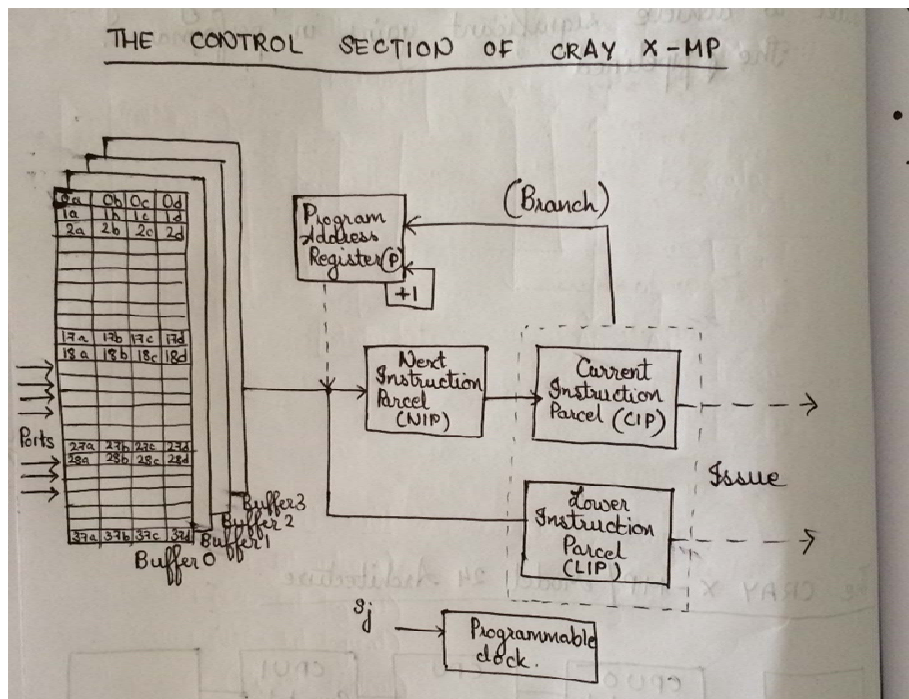 THE CONTROL SECTION OF CRAY X-MP
0a 0b 0c 0d
1a 1b 1c 1d
2a 2b 2c 2d
17a 17b 17c 17d
18a 18b 18c 18d
27a 27b 27c 27d
28a 28b 28c 28d
37a 37b 37c 37d
Ports
Buffer 0
Buffer 1
Buffer 2
Buffer 3
Program
Address
Register (P)
+1
(Branch)
Next
Instruction
Parcel
(NIP)
Current
Instruction
Parcel (CIP)
Issue
Lower
Instruction
Parcel
(LIP)
Sj
Programmable
clock.